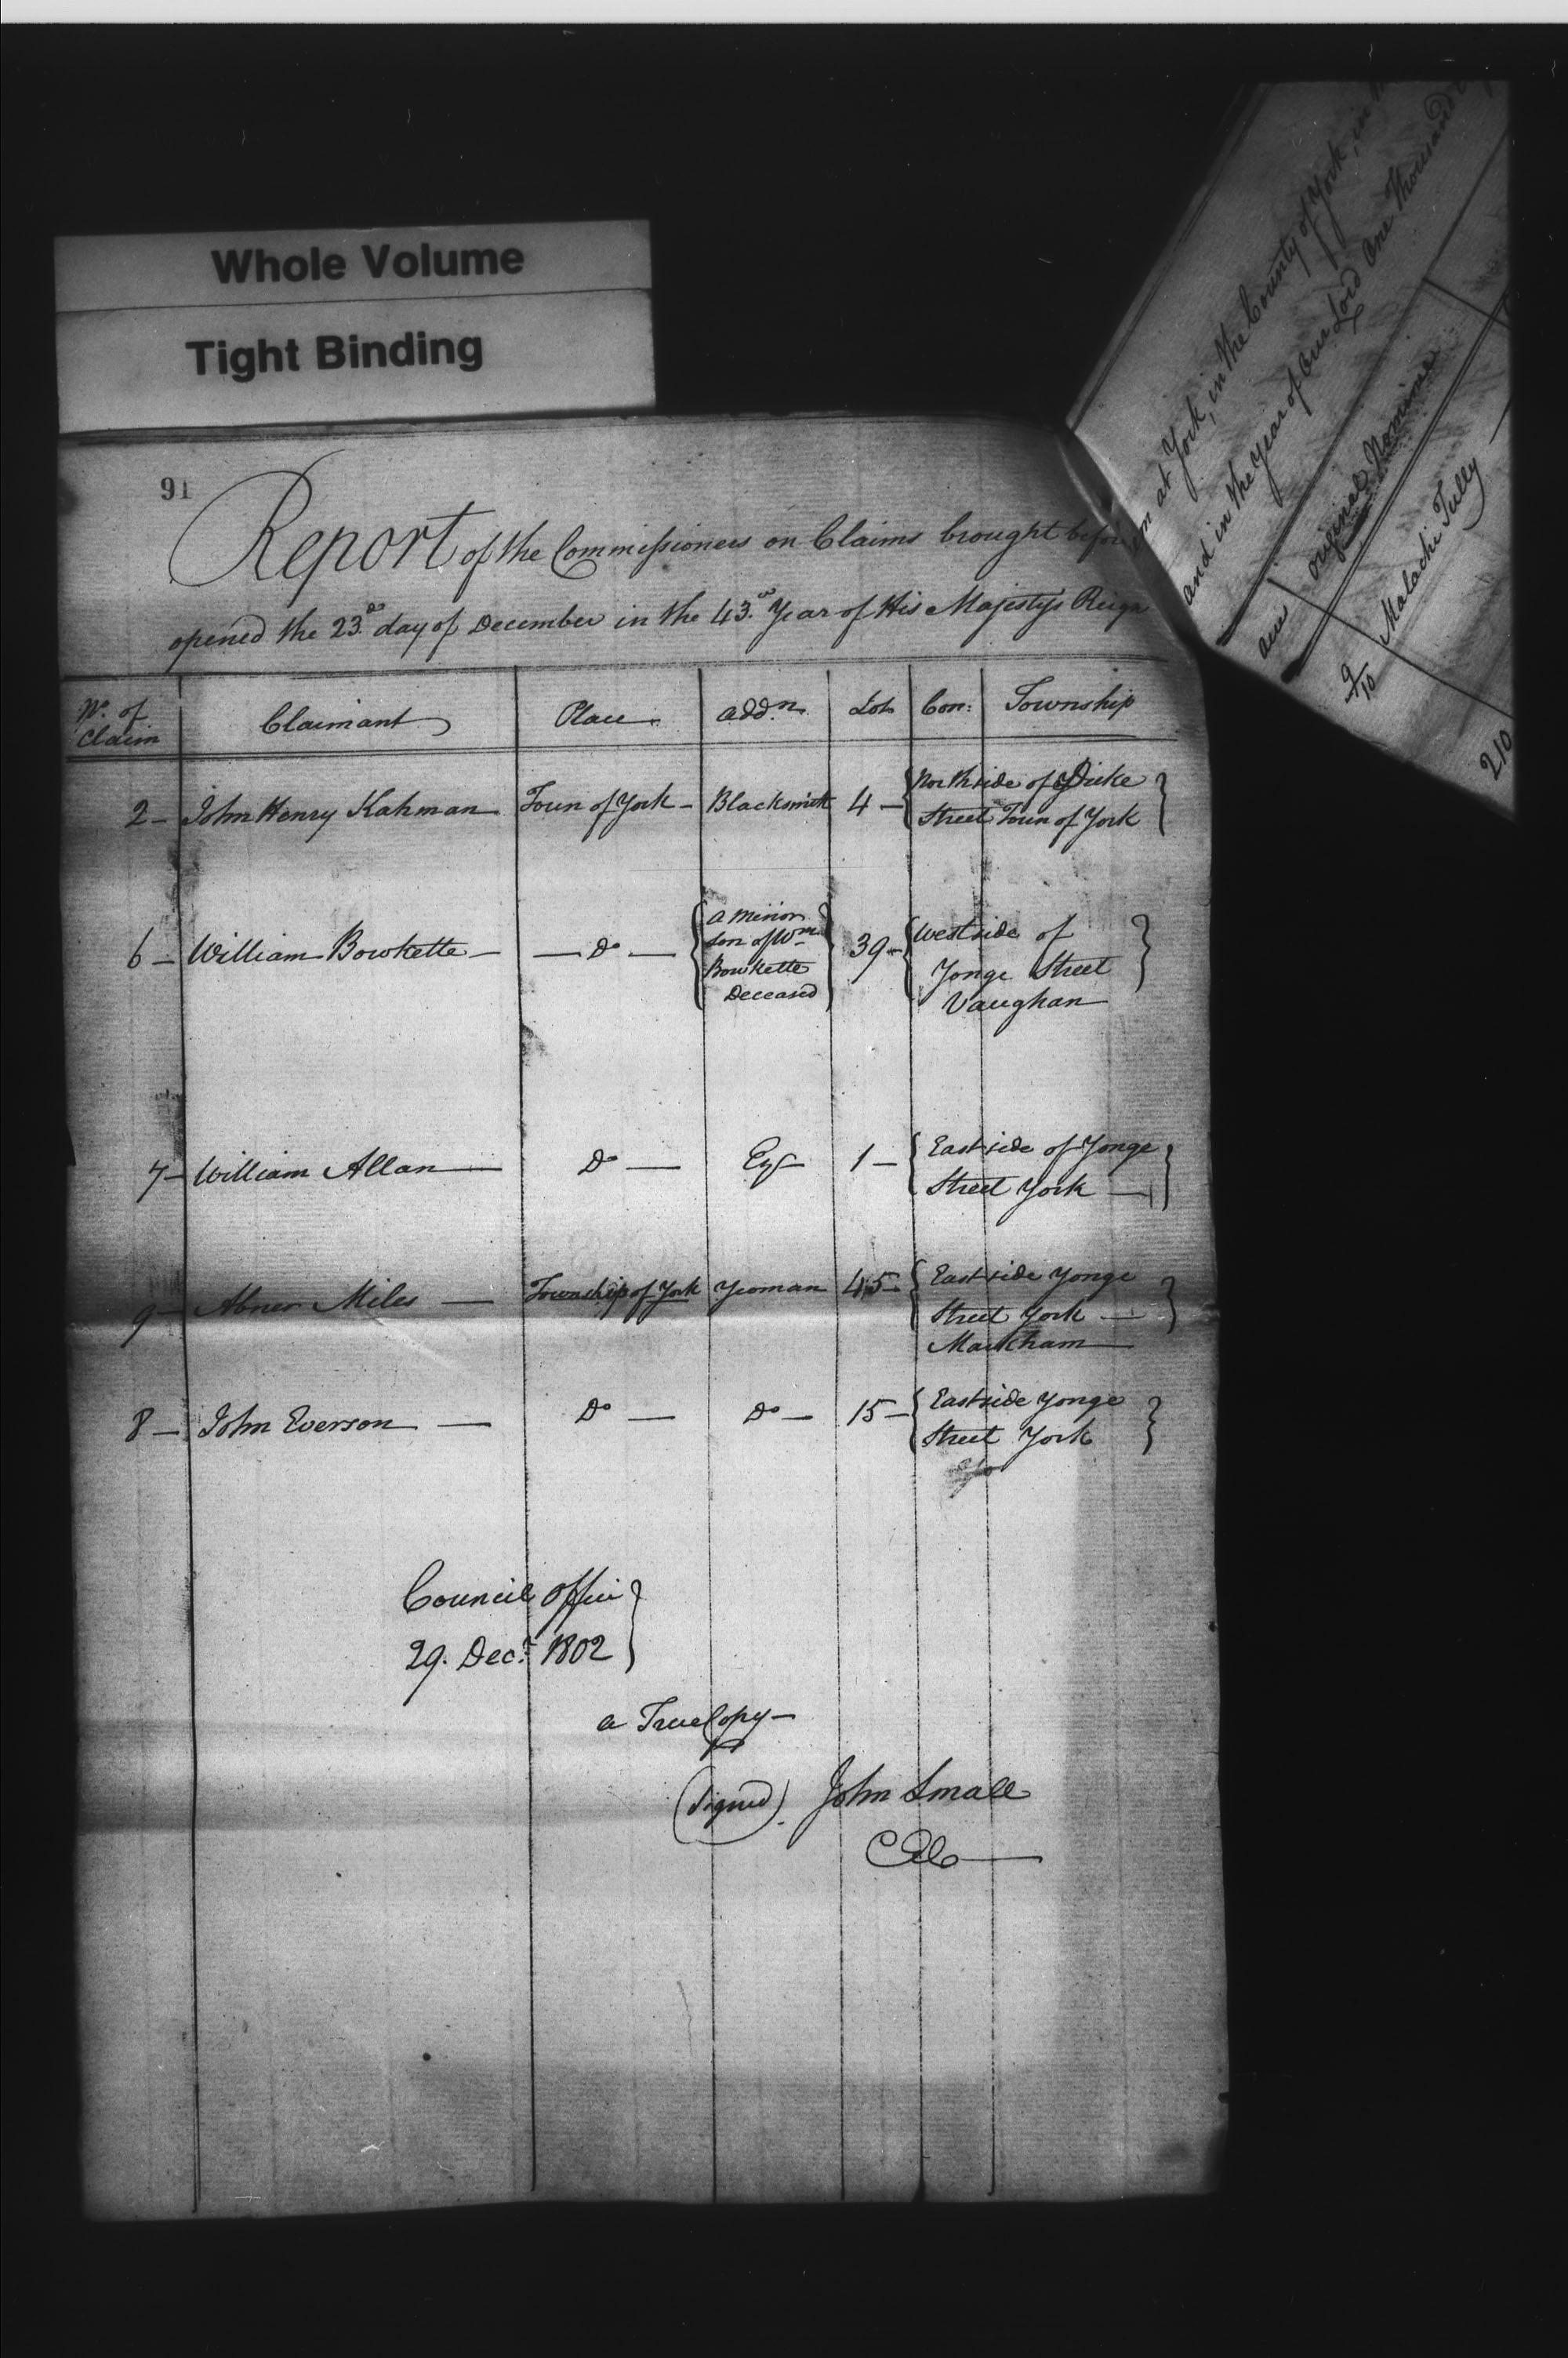 Whole Volume
Tight Binding
91
Report of the Commissioners on Claims brought before
opened the 23.d day of December in the 43.d Year of His Majestys Reign
No. of Claim | Claimant | Place | addn. | Lot | Con: | Township
2 — John Henry Kahman | Town of York — | Blacksmith | 4 — | Northside of Duke
Street Town of York
6 — William Bowkette — | — Do — | a minor
son of Wm
Bowkette
Deceased | 39 — | Westside of
Yonge Street
Vaughan
7 — William Allan — | Do — | Esqr | 1 — | Eastside of Yonge
Street York —
9 — Abner Miles — | Township of York | Yeoman | 45 — | Eastside Yonge
Street York —
Markham
8 — John Everson — | Do — | Do — | 15 — | Eastside Yonge
Street York
Council Office
29. Decr. 1802
a True Copy —
(signed). John Small
CEC
at York, in the County of York, in
and in the Year of Our Lord One Thousand
original Nominee
Malachi Tully
210